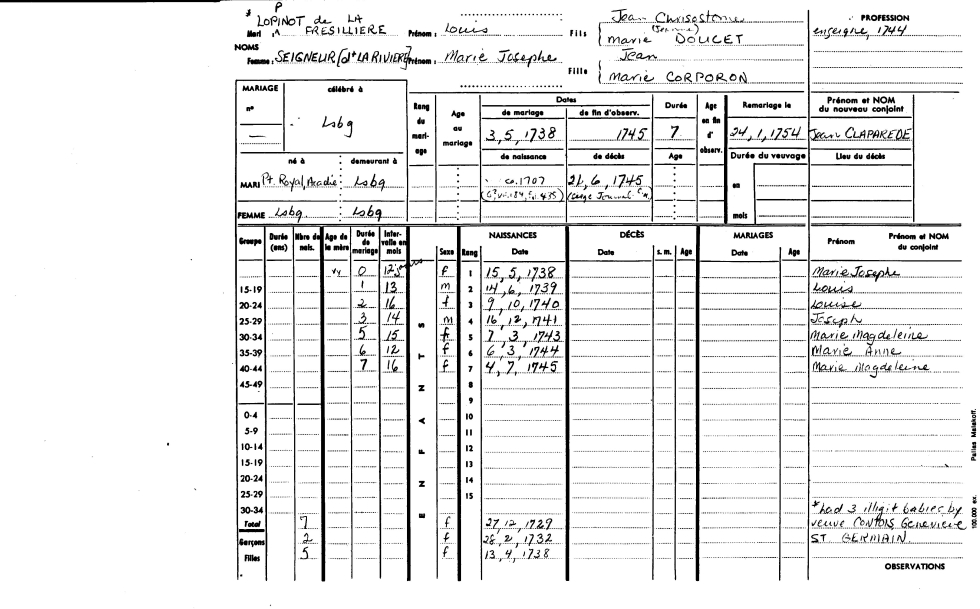 * P
LOPINOT de LA
Mari : FRESILLIERE Prénom : Louis Fils Jean Chrisostome
(Jeanne)
marie DOUCET
PROFESSION
enseigne, 1744
NOMS
Femme : SEIGNEUR [dt LA RIVIERE] Prénom : Marie Josephe Fille Jean
marie CORPORON
MARIAGE célébré à
n° Lsbg
Rang du mariage Age au mariage Dates Durée Age en fin d'observ. Remariage le Prénom et NOM du nouveau conjoint
de mariage de fin d'observ.
3, 5, 1738 1745 7 24, 1, 1754 Jean CLAPAREDE
de naissance de décès Age Durée du veuvage Lieu du décès
né à demeurant à
MARI Pt. Royal, Acadie Lsbg ca. 1707 21, 6, 1745 en
FEMME Lsbg. Lsbg mois
Groupe Durée (ans) Nbre de nais. Age de la mère Durée de mariage Intervalle en mois ENFANTS Sexe Rang NAISSANCES Date DÉCÈS Date s. m. Age MARIAGES Date Age Prénom Prénom et NOM du conjoint
0 f 1 15, 5, 1738 Marie Josephe
15-19 1 13 m 2 14, 6, 1739 Louis
20-24 2 16 f 3 9, 10, 1740 Louise
25-29 3 14 m 4 16, 12, 1741 Joseph
30-34 5 15 f 5 7, 3, 1743 Marie Magdeleine
35-39 6 12 f 6 6, 3, 1744 Marie Anne
40-44 7 16 f 7 4, 7, 1745 Marie Magdeleine
45-49 8
9
0-4 10
5-9 11
10-14 12
15-19 13
20-24 14
25-29 15
30-34 * had 3 illigit babies by
Total 7 f 27, 12, 1729 veuve CONTOIS Genevieve
Garçons 2 f 28, 2, 1732 ST GERMAIN.
Filles 5 f 13, 4, 1738
OBSERVATIONS
Pallas Malakoff.